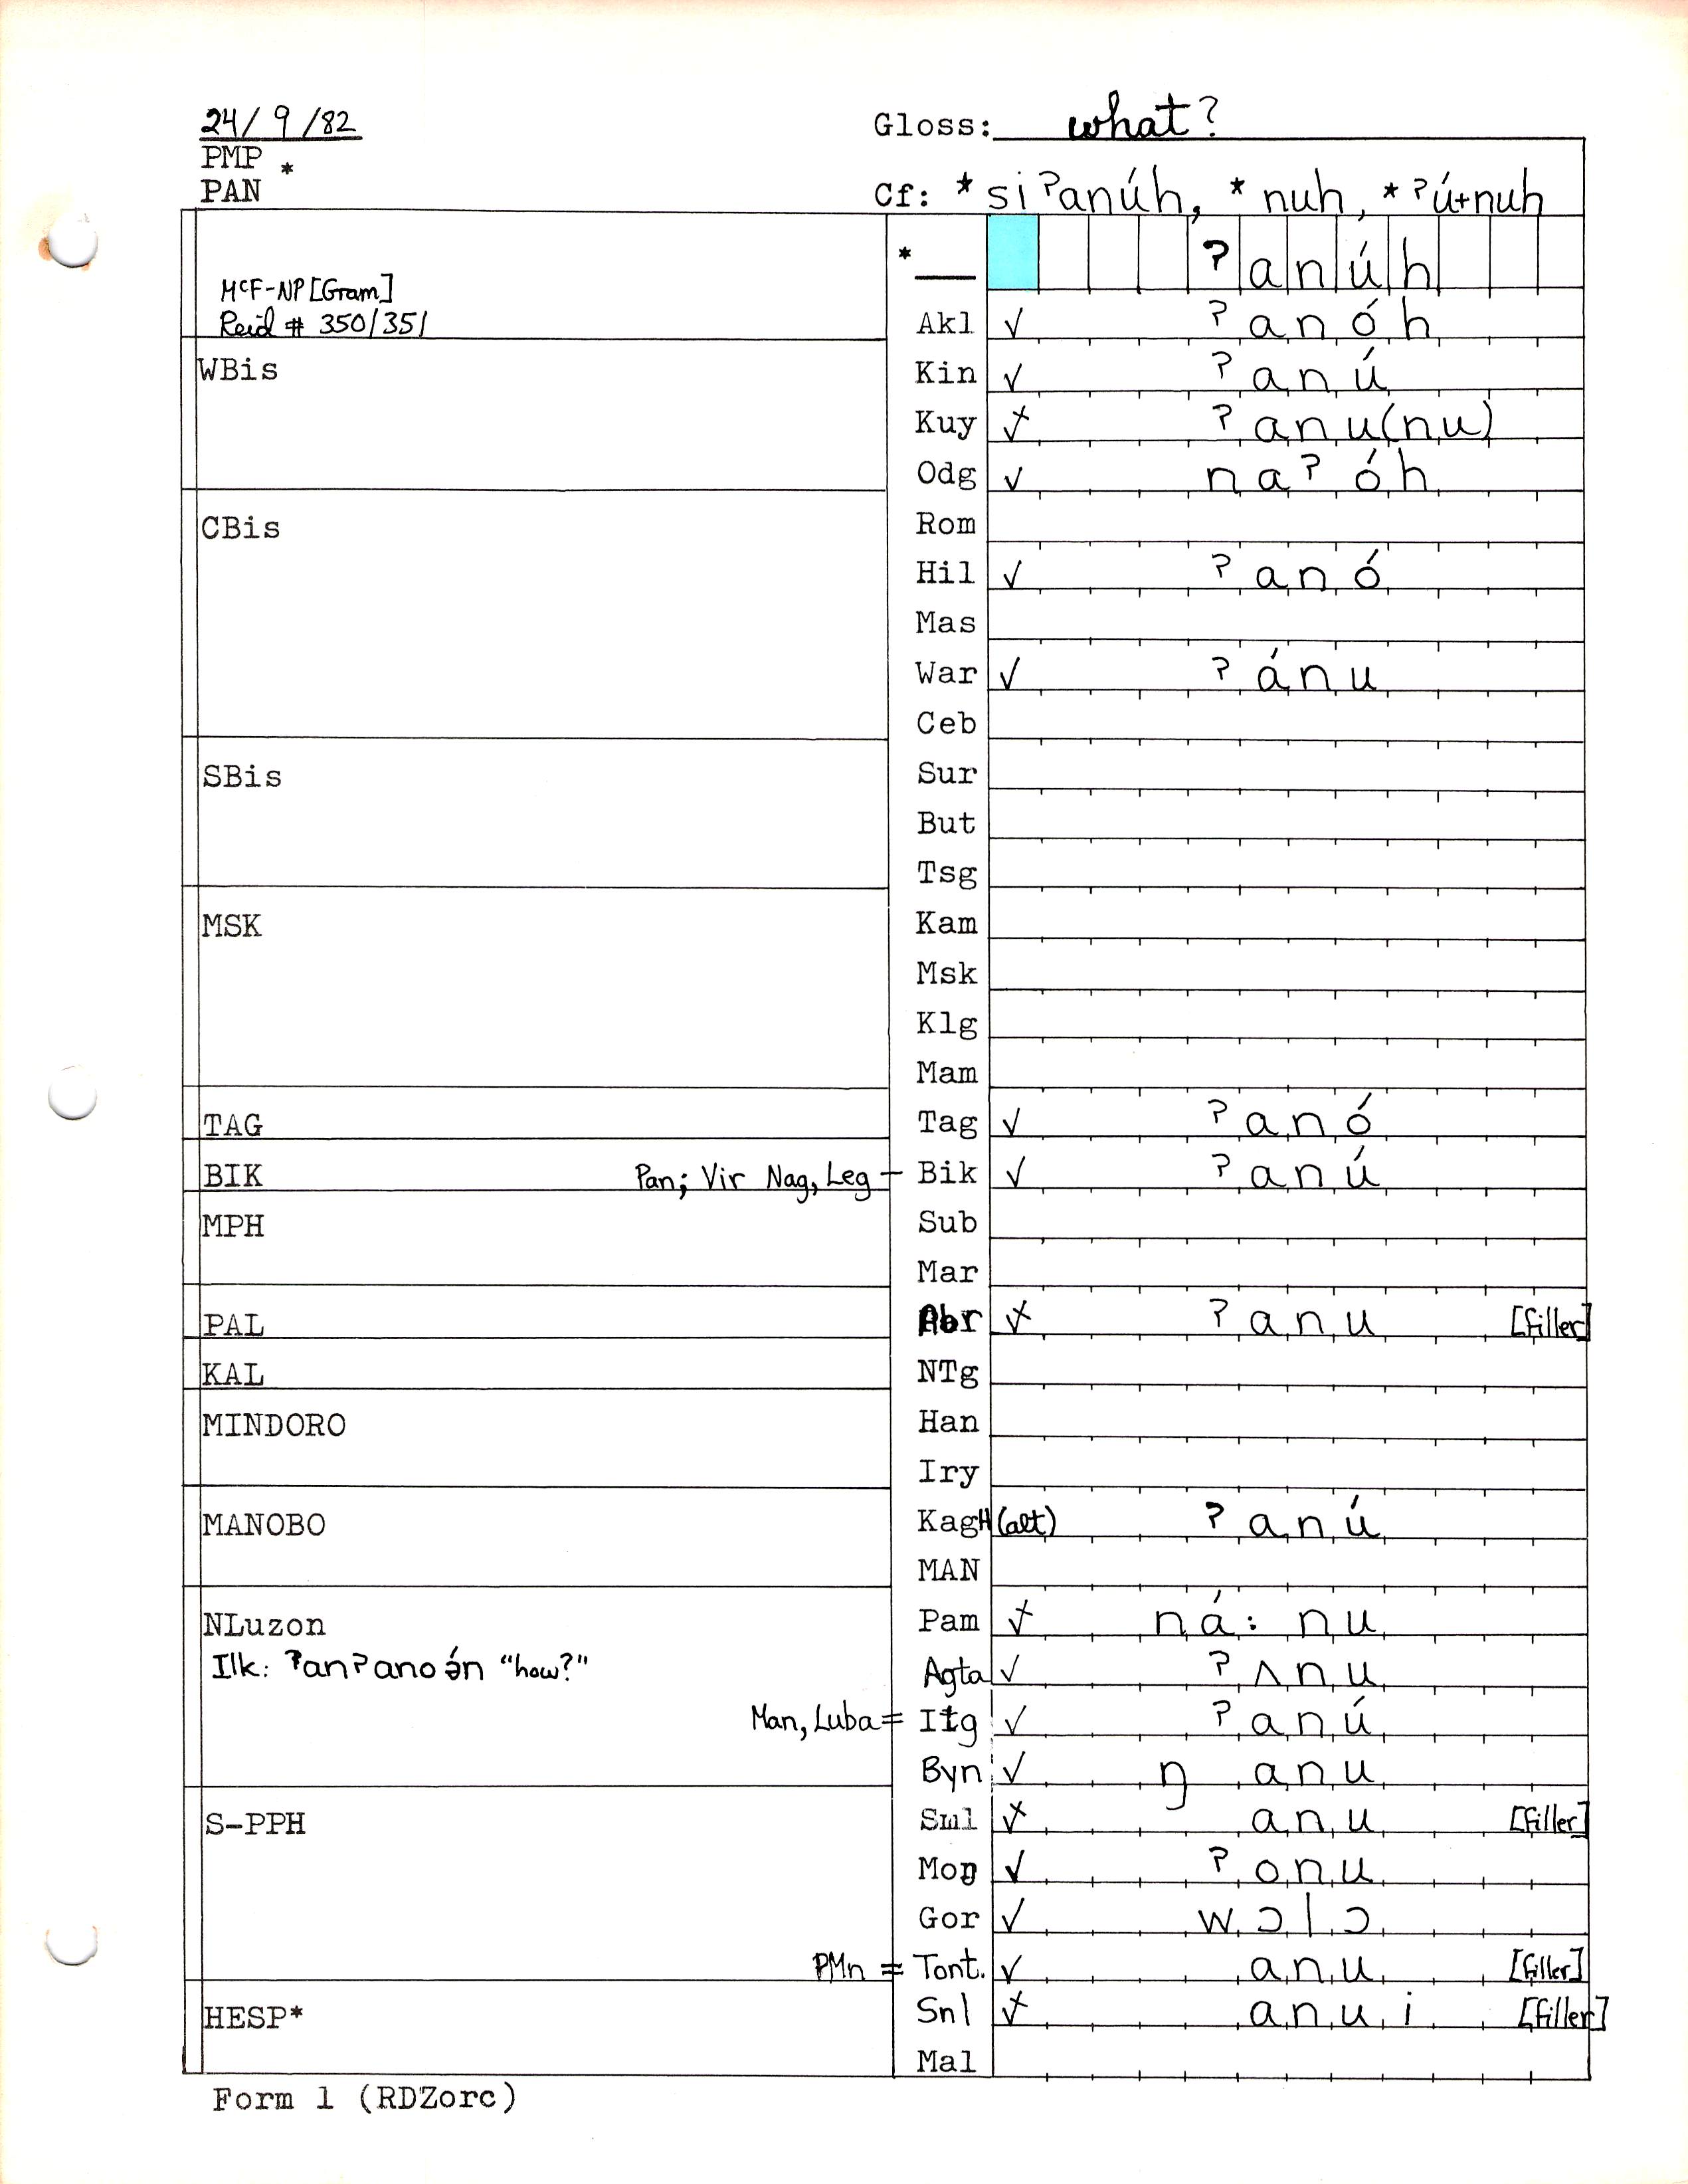 24/9/82
Gloss: what?
PMP *
PAN
Cf: *siʔanúh, *nuh, *ʔú+nuh
* ʔanúh
McF-NP [Gram]
Reid # 350/351
Akl √ ʔanóh
WBis
Kin √ ʔanú
Kuy ʔanu(nu)
Odg √ naʔóh
CBis
Rom
Hil √ ʔanó
Mas
War √ ʔánu
Ceb
SBis
Sur
But
Tsg
MSK
Kam
Msk
Klg
Mam
TAG
Tag √ ʔanó
BIK Pan; Vir Nag, Leg – Bik √ ʔanú
MPH
Sub
Mar
PAL
Abr ʔanu [filler]
KAL
NTg
MINDORO
Han
Iry
MANOBO
KagH (alt) ʔanú
MAN
NLuzon
Pam ná:nu
Ilk: ʔanʔanoə́n "how?"
Agta √ ʔʌnu
Man, Luba = Itg √ ʔanú
Byn √ ŋanu
S-PPH
Sml anu [filler]
Mog √ ʔonu
Gor √ wɔlɔ
PMn = Tont. √ anu [filler]
HESP*
Snl anui [filler]
Mal
Form 1 (RDZorc)